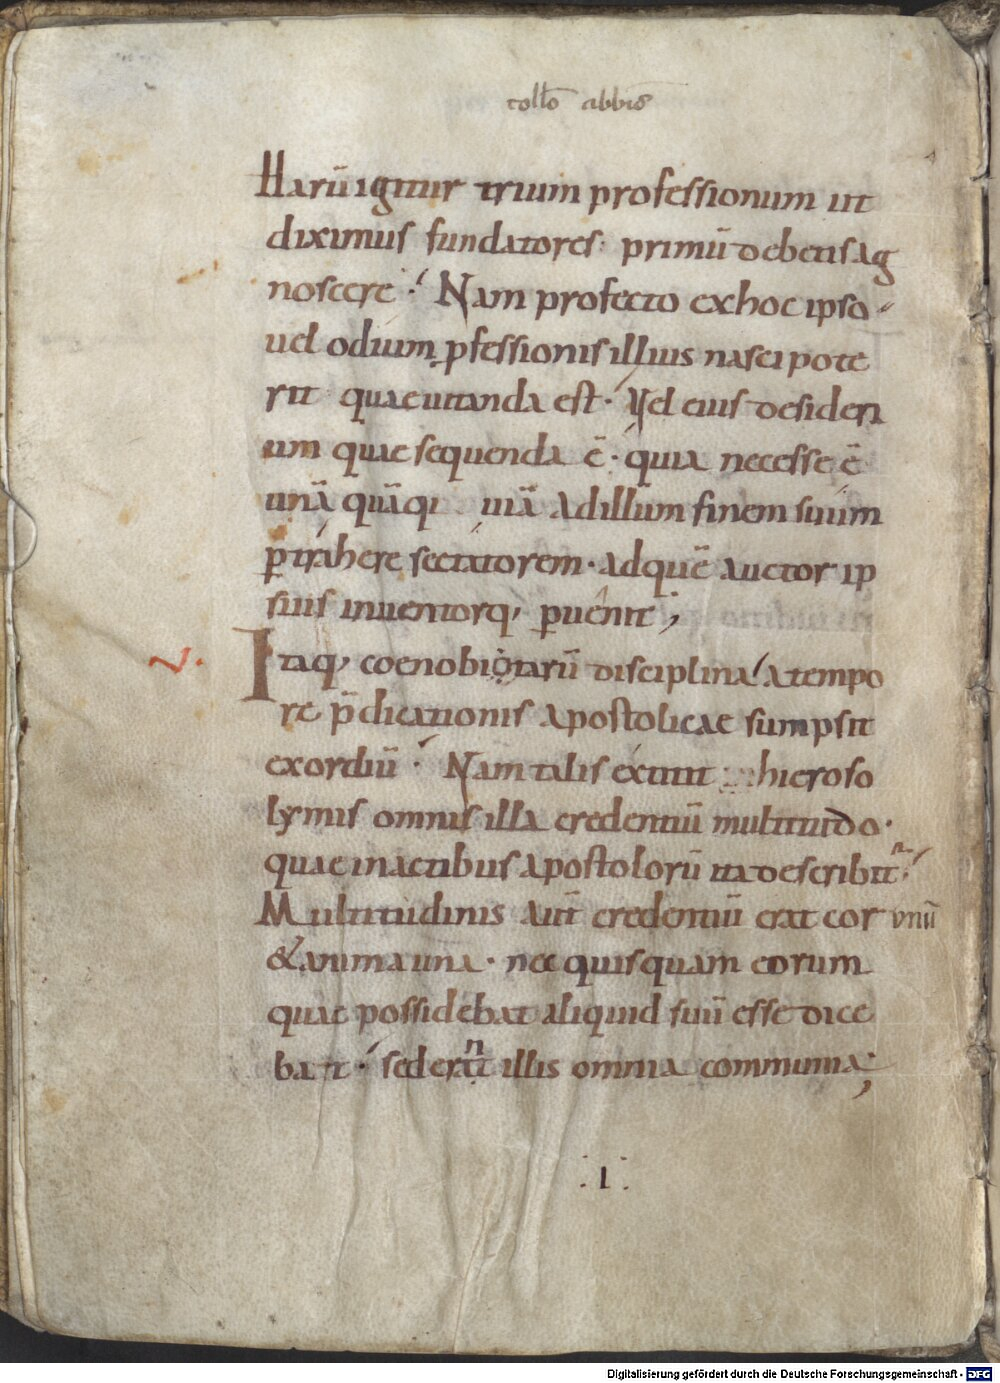 collō abbīs
Harū igitur trium professionum ut
diximus fundatores· primū debetis ag
noscere· Nam profecto ex hoc ipso
uel odium ꝓfessionis illius nasci pote
rit quae uitanda est· Vel eius desideri
um quae sequenda ē· quia necesse ē
unā quāqꝫ uiā ad illum finem suum
ꝑtrahere sectatorem· ad quē auctor ip
sius inuentorqꝫ ꝑuenit;
Itaqꝫ coenobiotarū disciplina a tempo
re p̄dicationis apostolicae sumpsit
exordiū· Nam talis extitit in hieroso
lymis omnis illa credentiū multitudo·
quae in actibus apostolorū ita describit᷑·
Multitudinis aut̄ credentiū erat cor vnū
& anima una· nec quisquam eorum
quae possidebat aliquid suū esse dice
bat· sed erant illis omnia communia;
·I·
Digitalisierung gefördert durch die Deutsche Forschungsgemeinschaft - DFG